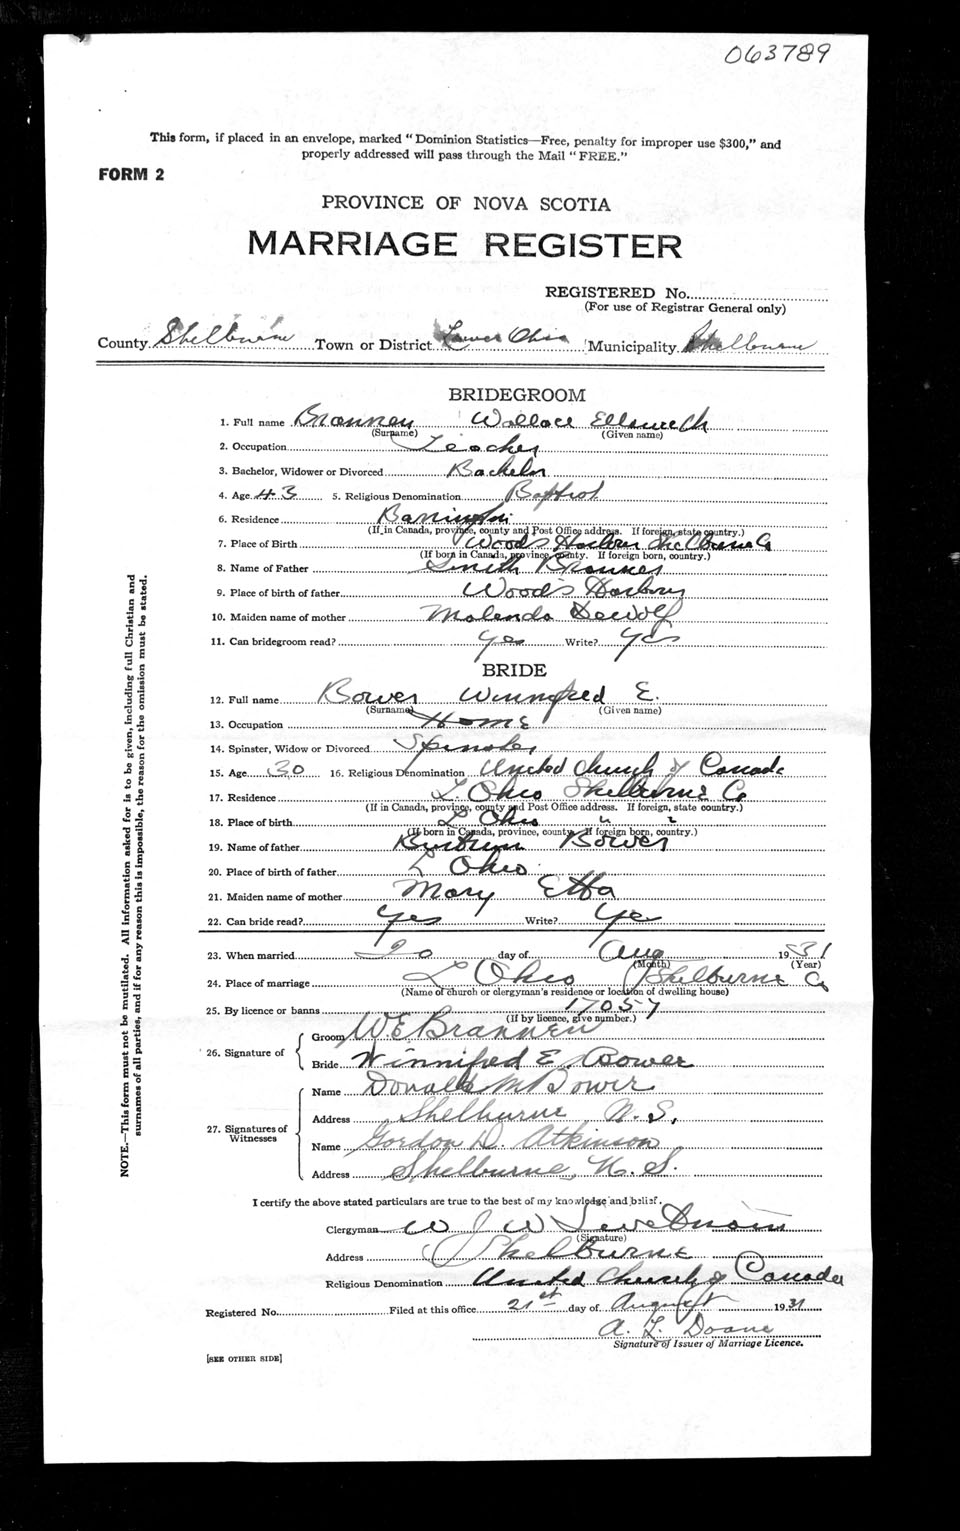 063789
This form, if placed in an envelope, marked "Dominion Statistics—Free, penalty for improper use $300," and
properly addressed will pass through the Mail "FREE."
FORM 2
PROVINCE OF NOVA SCOTIA
MARRIAGE REGISTER
REGISTERED No.
(For use of Registrar General only)
County Shelburne Town or District Lower Ohio Municipality Shelburne
BRIDEGROOM
1. Full name Brannen Wallace Ellsworth
(Surname) (Given name)
2. Occupation Teacher
3. Bachelor, Widower or Divorced Bachelor
4. Age 43 5. Religious Denomination Baptist
6. Residence Barrington
(If in Canada, province, county and Post Office address. If foreign, state country.)
7. Place of Birth Wood's Harbour Shelburne Co
(If born in Canada, province, county. If foreign born, country.)
8. Name of Father Smith Brannen
9. Place of birth of father Wood's Harbour
10. Maiden name of mother Malenda Dewolf
11. Can bridegroom read? yes Write? Yes
BRIDE
12. Full name Bower Winnifred E.
(Surname) (Given name)
13. Occupation Home
14. Spinster, Widow or Divorced Spinster
15. Age 30 16. Religious Denomination United Church of Canada
17. Residence L. Ohio Shelburne Co
(If in Canada, province, county and Post Office address. If foreign, state country.)
18. Place of birth L Ohio " "
(If born in Canada, province, county. If foreign born, country.)
19. Name of father Bower
20. Place of birth of father L Ohio
21. Maiden name of mother Mary Etta
22. Can bride read? Yes Write? Yes
23. When married 20 day of Aug 1931
(Month) (Year)
24. Place of marriage L Ohio Shelburne Co
(Name of church or clergyman's residence or location of dwelling house)
25. By licence or banns 17057
(If by licence, give number.)
26. Signature of
Groom W E Brannen
Bride Winnifred E. Bower
27. Signatures of Witnesses
Name Donald M Bower
Address Shelburne N.S.,
Name Gordon D. Atkinson
Address Shelburne, N.S.
I certify the above stated particulars are true to the best of my knowledge and belief.
Clergyman W J W
(Signature)
Address Shelburne
Religious Denomination United Church of Canada
Registered No. Filed at this office 21st day of August 1931
A. L. Doane
Signature of Issuer of Marriage Licence.
[SEE OTHER SIDE]
NOTE.—This form must not be mutilated. All information asked for is to be given, including full Christian and
surnames of all parties, and if for any reason this is impossible, the reason for the omission must be stated.